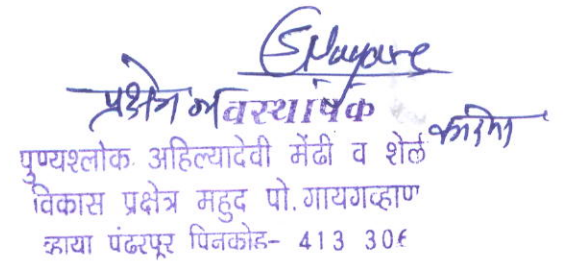 प्रक्षेत्र व्यवस्थापक
करिता
पुण्यश्लोक अहिल्यादेवी मेंढी व शेळी
विकास प्रक्षेत्र महुद पो.गायगव्हाण
व्हाया पंढरपूर पिनकोड- 413 306